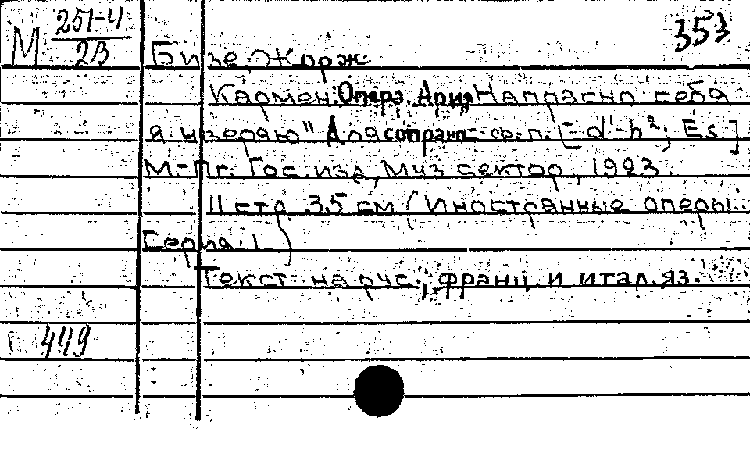 М 251-4/23
353
Бизе, Жорж
Кармен. Опера. Ария „Напрасно себя
я уверяю" Для сопрано с ф.п. [= d'-h²; Es]
М.-Пг. Гос. изд., Муз сектор, 1923.
11 стр. 35 см (Иностранные оперы.
Серия I)
Текст на рус., франц. и итал. яз.
449